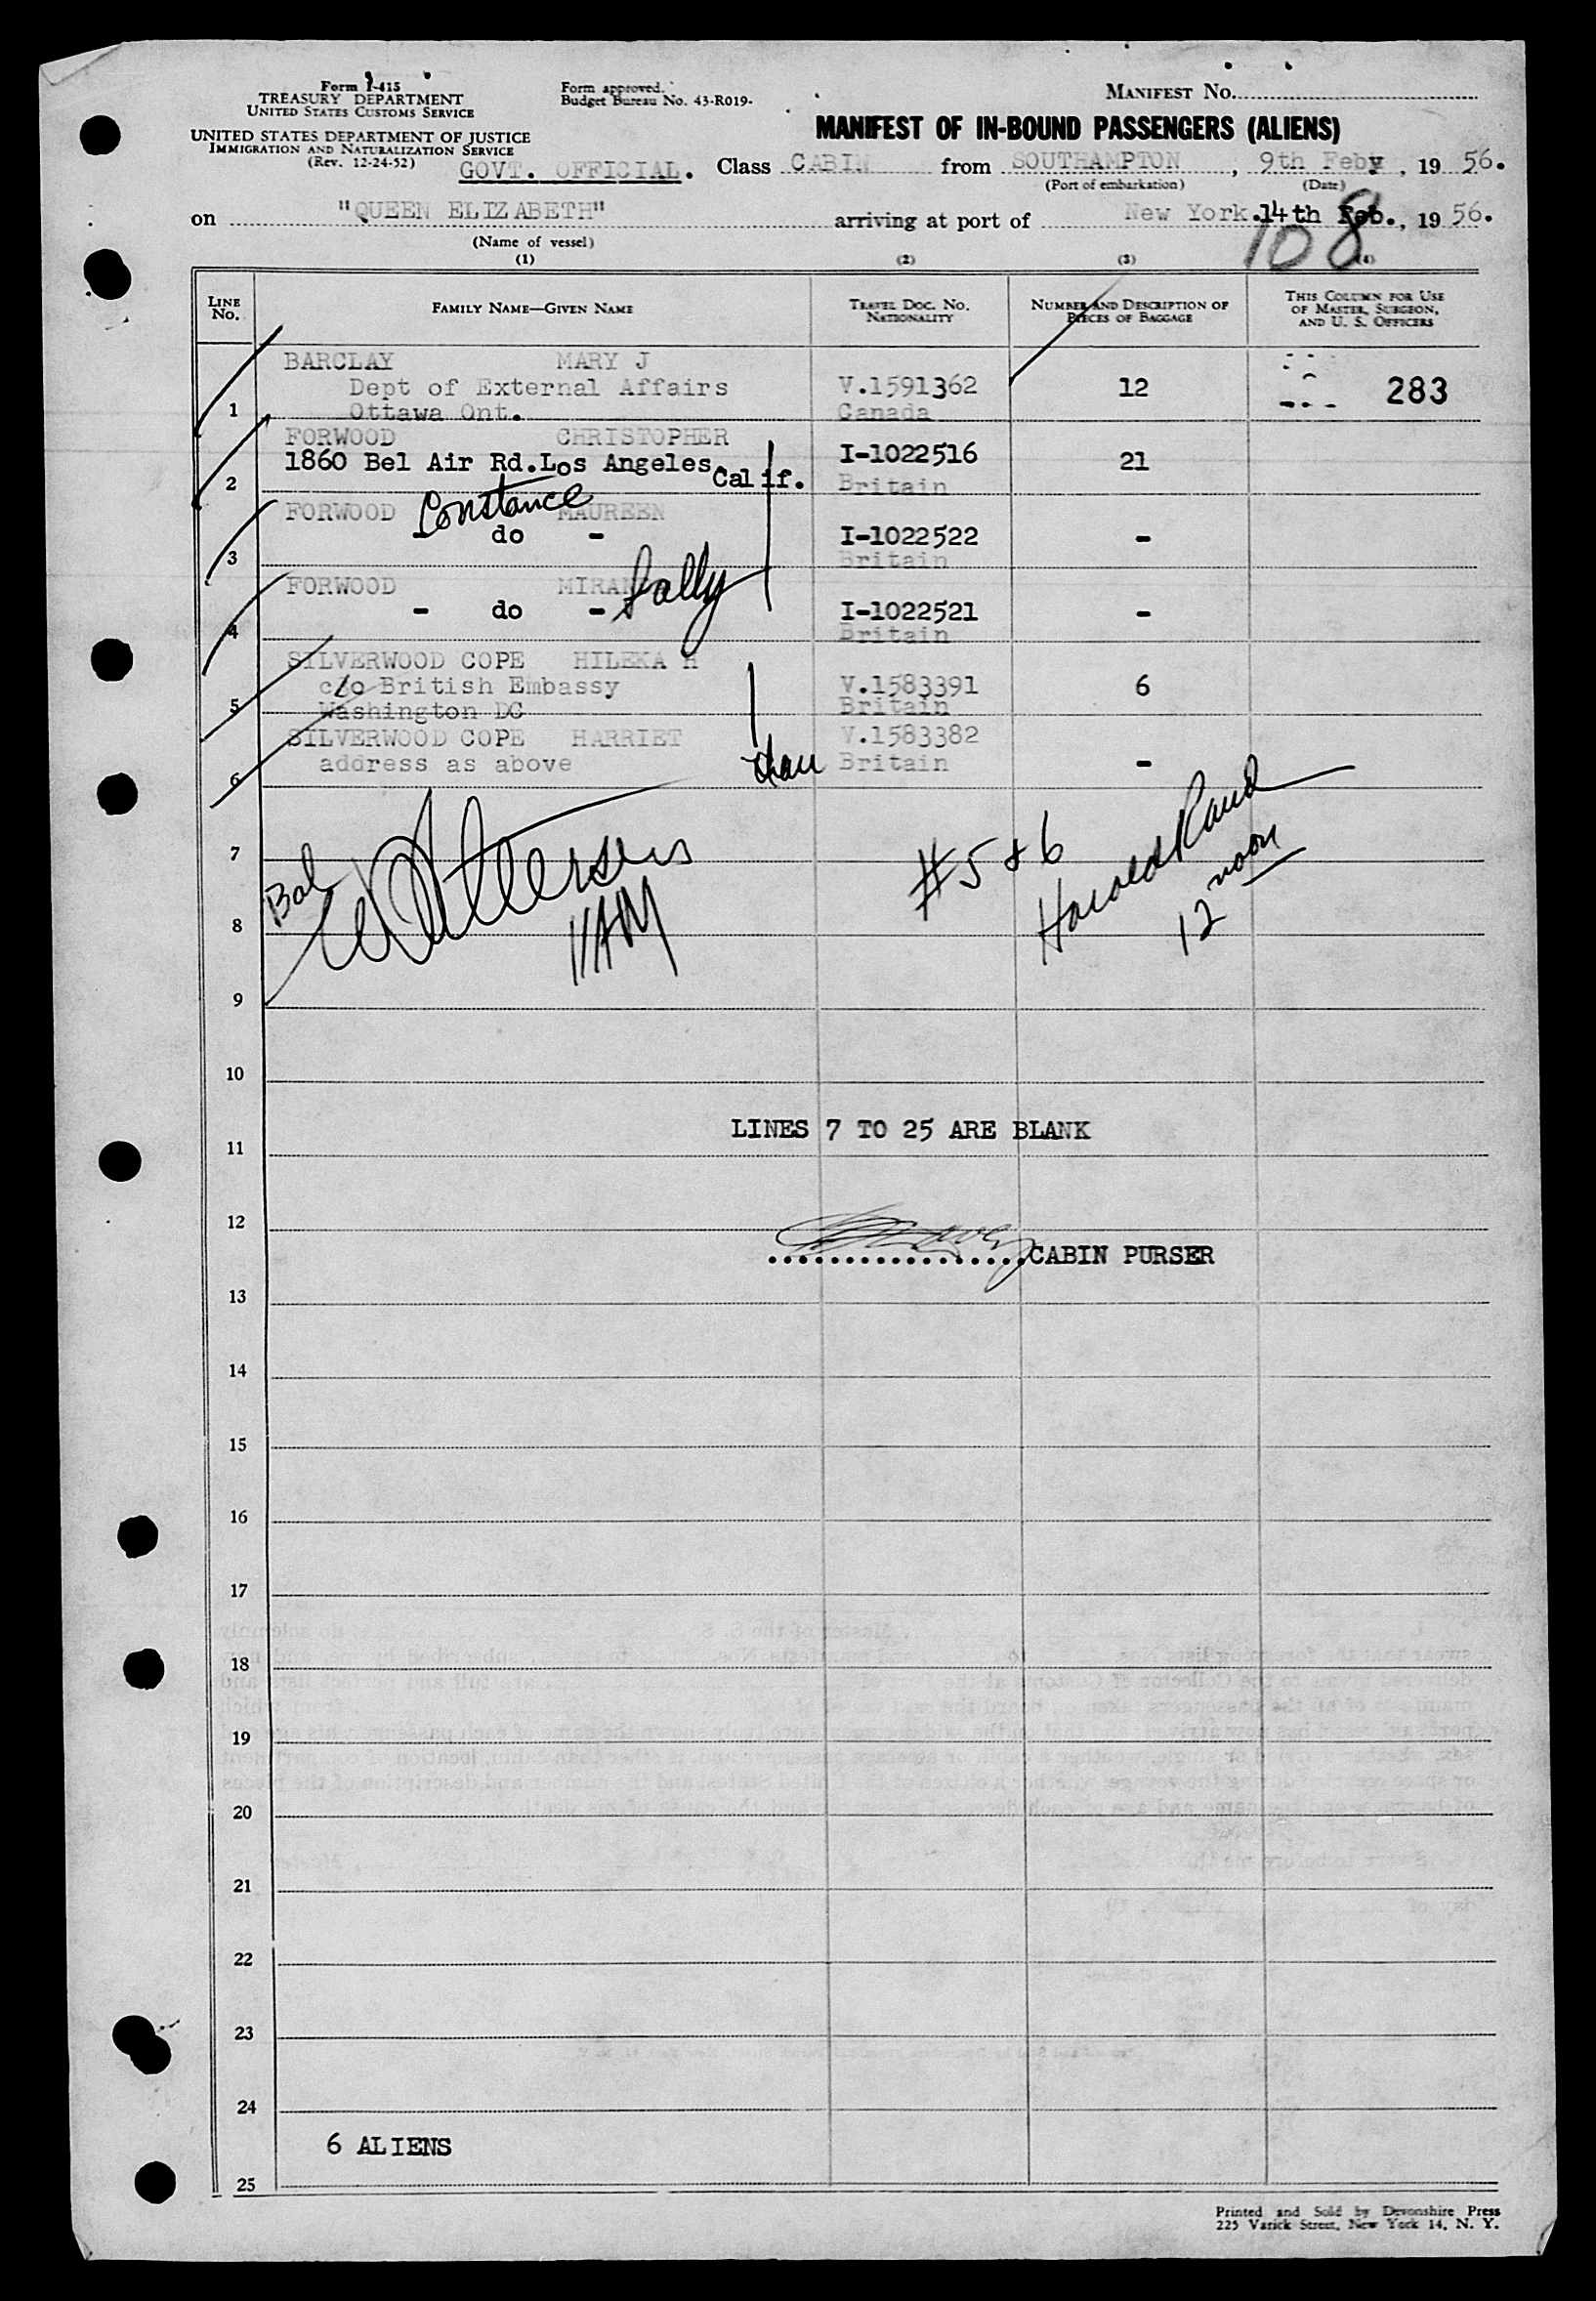 Form I-415
TREASURY DEPARTMENT
UNITED STATES CUSTOMS SERVICE
UNITED STATES DEPARTMENT OF JUSTICE
IMMIGRATION AND NATURALIZATION SERVICE
(Rev. 12-24-52)
Form approved.
Budget Bureau No. 43-R019-
MANIFEST NO.
MANIFEST OF IN-BOUND PASSENGERS (ALIENS)
GOVT. OFFICIAL. Class CABIN from SOUTHAMPTON, 9th Feby, 19 56.
(Port of embarkation) (Date)
on "QUEEN ELIZABETH" arriving at port of New York. 14th Feb., 19 56.
(Name of vessel)
108
(1) (2) (3) (4)
LINE NO. FAMILY NAME—GIVEN NAME TRAVEL DOC. NO. NATIONALITY NUMBER AND DESCRIPTION OF PIECES OF BAGGAGE THIS COLUMN FOR USE OF MASTER, SURGEON, AND U. S. OFFICERS
BARCLAY MARY J
Dept of External Affairs V.1591362 12 283
1 Ottawa Ont. Canada
FORWOOD CHRISTOPHER
1860 Bel Air Rd. Los Angeles. Calif. I-1022516 21
2 Britain
FORWOOD Constance MAUREEN
- do - I-1022522 -
3 Britain
FORWOOD Sally
- do - I-1022521 -
4 Britain
SILVERWOOD COPE HILEKA H
c/o British Embassy V.1583391 6
5 Washington DC Britain
SILVERWOOD COPE HARRIET V.1583382
6 address as above Britain -
7
#5 & 6
Harold Rand
12 noon
Bob
11AM
8
9
10
LINES 7 TO 25 ARE BLANK
11
12
CABIN PURSER
13
14
15
16
17
18
19
20
21
22
23
24
6 ALIENS
25
Printed and Sold by Devonshire Press
225 Varick Street, New York 14, N. Y.